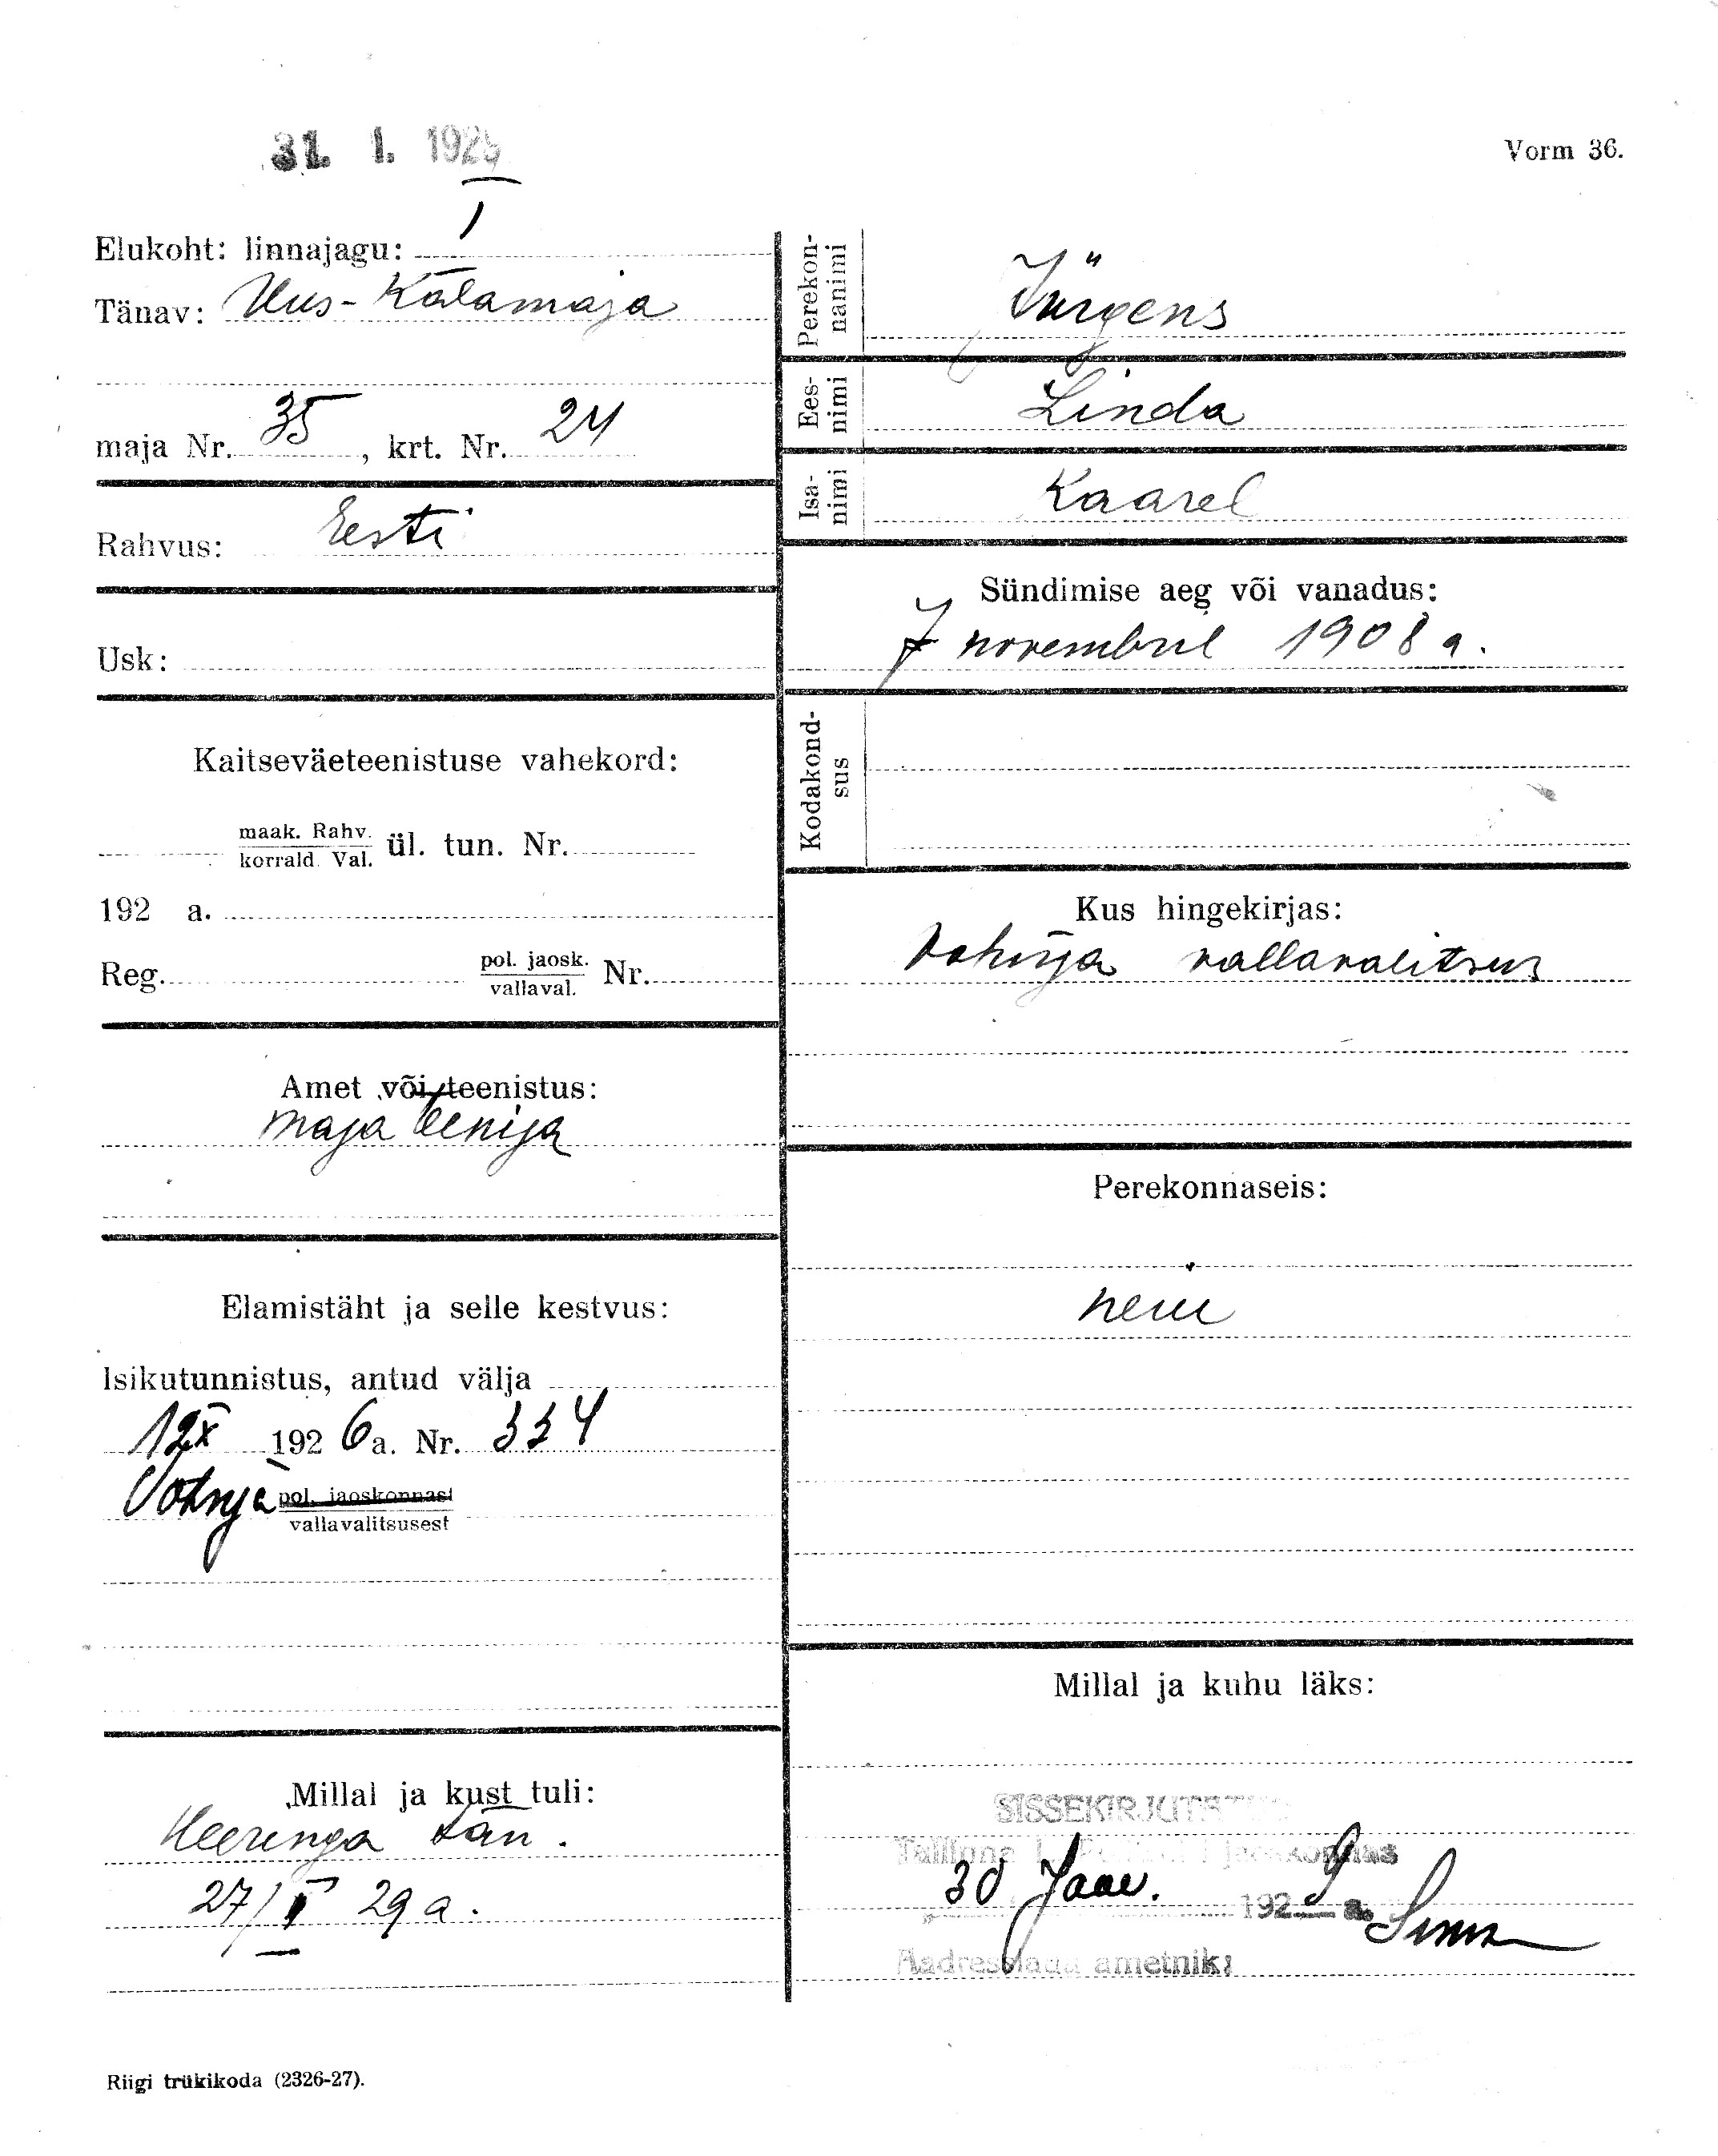 31. 1. 192
Vorm 36.
Elukoht: linnajagu: I
Tänav: Uus-Kalamaja
maja Nr. 35, krt. Nr. 24
Rahvus: Eesti
Usk:
Kaitseväeteenistuse vahekord:
maak. Rahv.
korrald. Val. ül. tun. Nr.
192 a.
Reg. pol. jaosk.
vallaval. Nr.
Amet või teenistus:
maja teenija
Elamistäht ja selle kestvus:
Isikutunnistus, antud välja
12 X 1926 a. Nr. 334
Vohnja pol. jaoskonnast
vallavalitsusest
Millal ja kust tuli:
Heeringa tän.
27/I 29 a.
Perekon-
nanimi
Jürgens
Ees-
nimi
Linda
Isa-
nimi
Kaarel
Sündimise aeg või vanadus:
7 novembril 1908 a.
Kodakond-
sus
Kus hingekirjas:
Vohnja vallavalitsus
Perekonnaseis:
neiu
Millal ja kuhu läks:
SISSEKIRJUTATUD
Tallinna jaoskonnas
30 Jaan. 1929 a.
Aadresslaua ametnik:
Riigi trükikoda (2326-27).